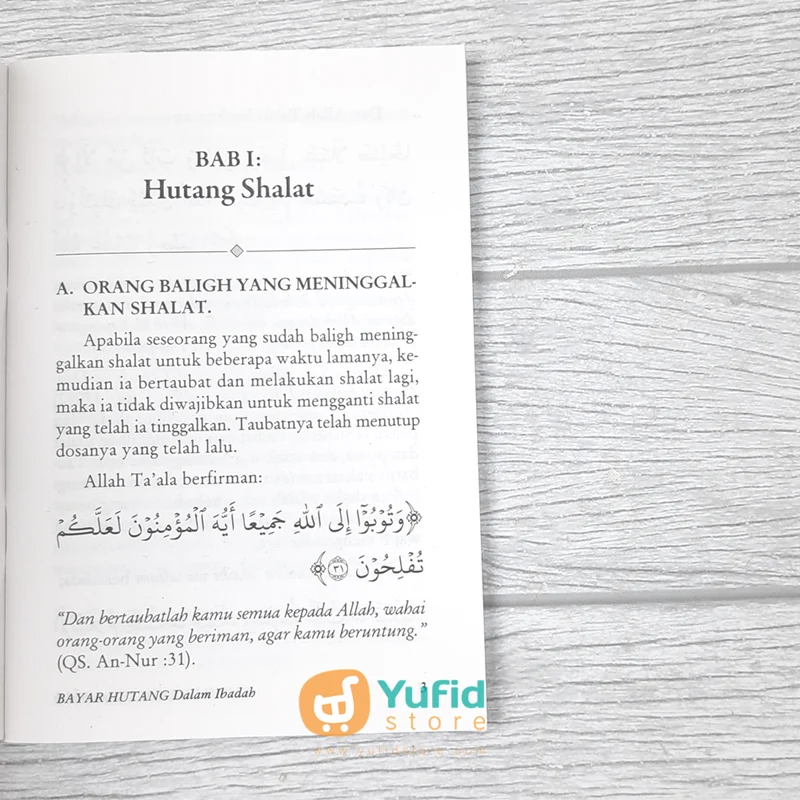 BAB I:
Hutang Shalat
A. ORANG BALIGH YANG MENINGGAL-
KAN SHALAT.
Apabila seseorang yang sudah baligh mening-
galkan shalat untuk beberapa waktu lamanya, ke-
mudian ia bertaubat dan melakukan shalat lagi,
maka ia tidak diwajibkan untuk mengganti shalat
yang telah ia tinggalkan. Taubatnya telah menutup
dosanya yang telah lalu.
Allah Ta'ala berfirman:
﴿وَتُوْبُوْٓا إِلَى ٱللَّهِ جَمِيْعًا أَيُّهَ ٱلْمُؤْمِنُوْنَ لَعَلَّكُمْ
تُفْلِحُوْنَ ٣١﴾
“Dan bertaubatlah kamu semua kepada Allah, wahai
orang-orang yang beriman, agar kamu beruntung.”
(QS. An-Nur :31).
BAYAR HUTANG Dalam Ibadah 3
Yufid
store
www.yufidstore.com